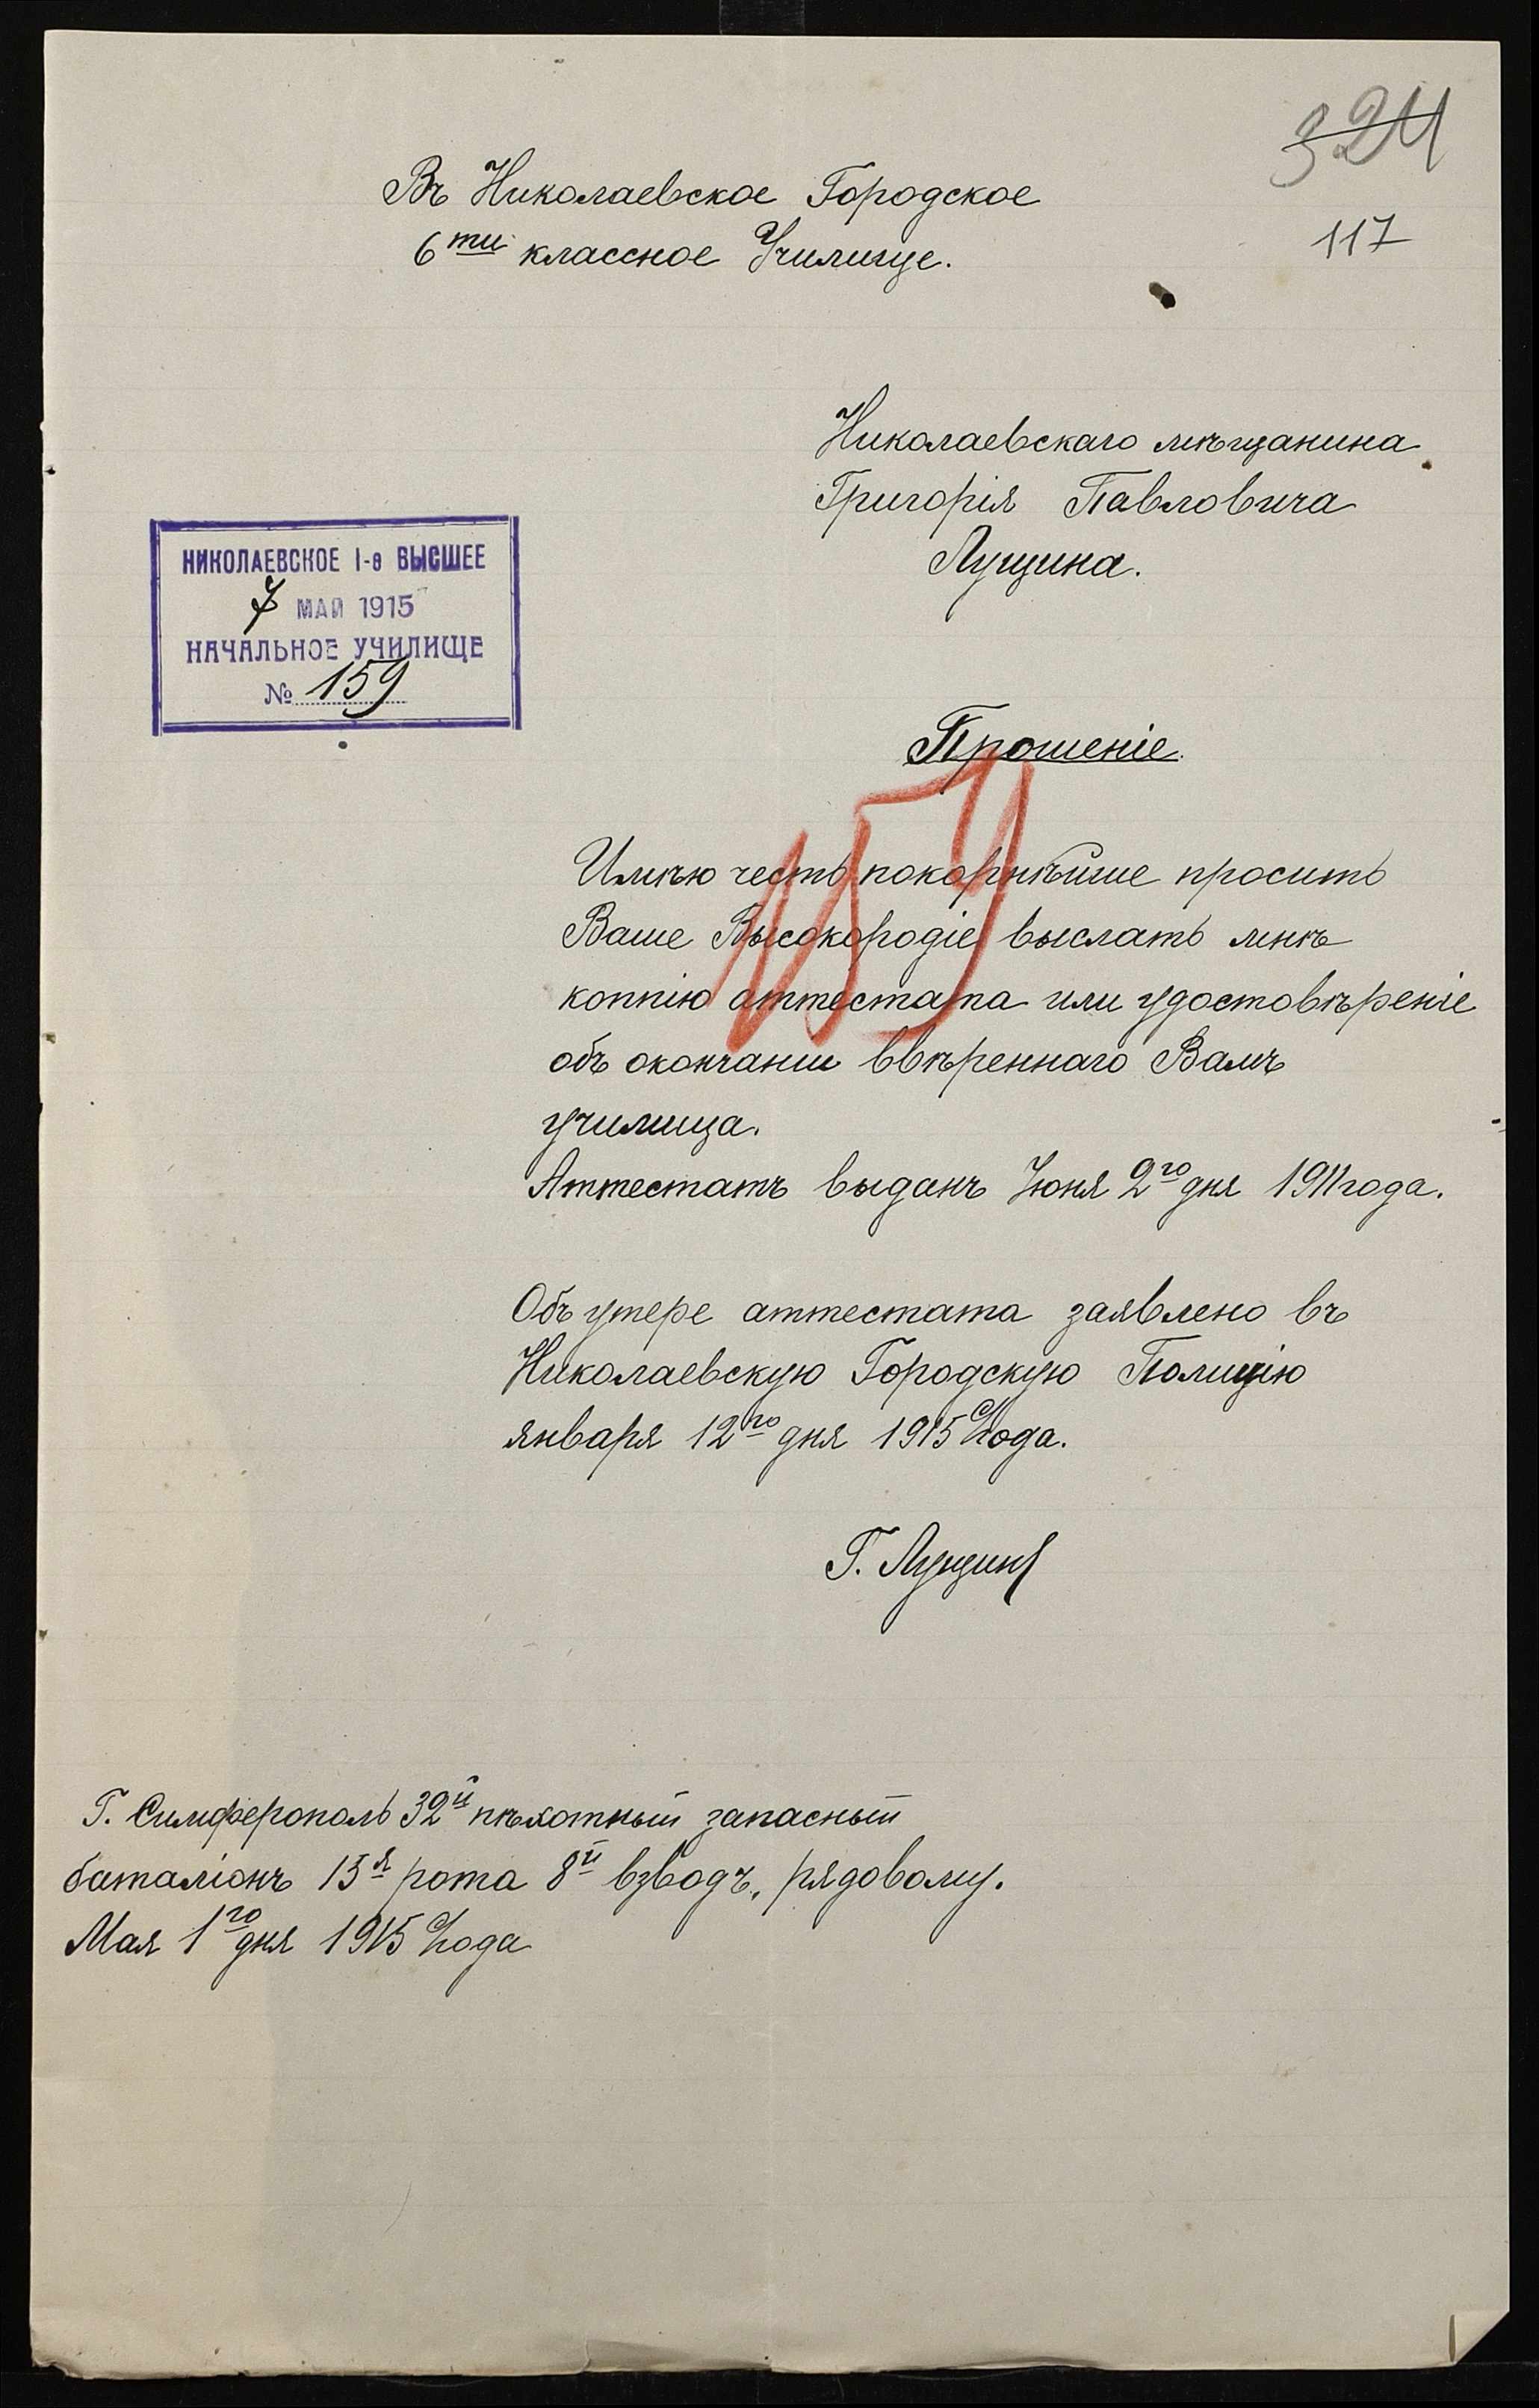 324
Въ Николаевское Городское
117
6ти классное Училище.
Николаевскаго мѣщанина
Григорія Павловича
Лущина.
НИКОЛАЕВСКОЕ I-е ВЫСШЕЕ
7 МАЙ 1915
НАЧАЛЬНОЕ УЧИЛИЩЕ
№ 159
Прошеніе.
Имѣю честь покорнѣйше просить
Ваше Высокородіе выслать мнѣ
коппію аттестата или удостовѣреніе
объ окончаніи ввѣреннаго Вамъ
училища.
Аттестатъ выданъ Іюня 2го дня 1911 года.
Объ утере аттестата заявлено въ
Николаевскую Городскую Полицію
января 12го дня 1915 Года.
Г. Лущинъ
Г. Симферополь 32й пѣхотный запасный
баталіонъ 13я рота 8й взводъ, рядовому.
Мая 1го дня 1915 Года